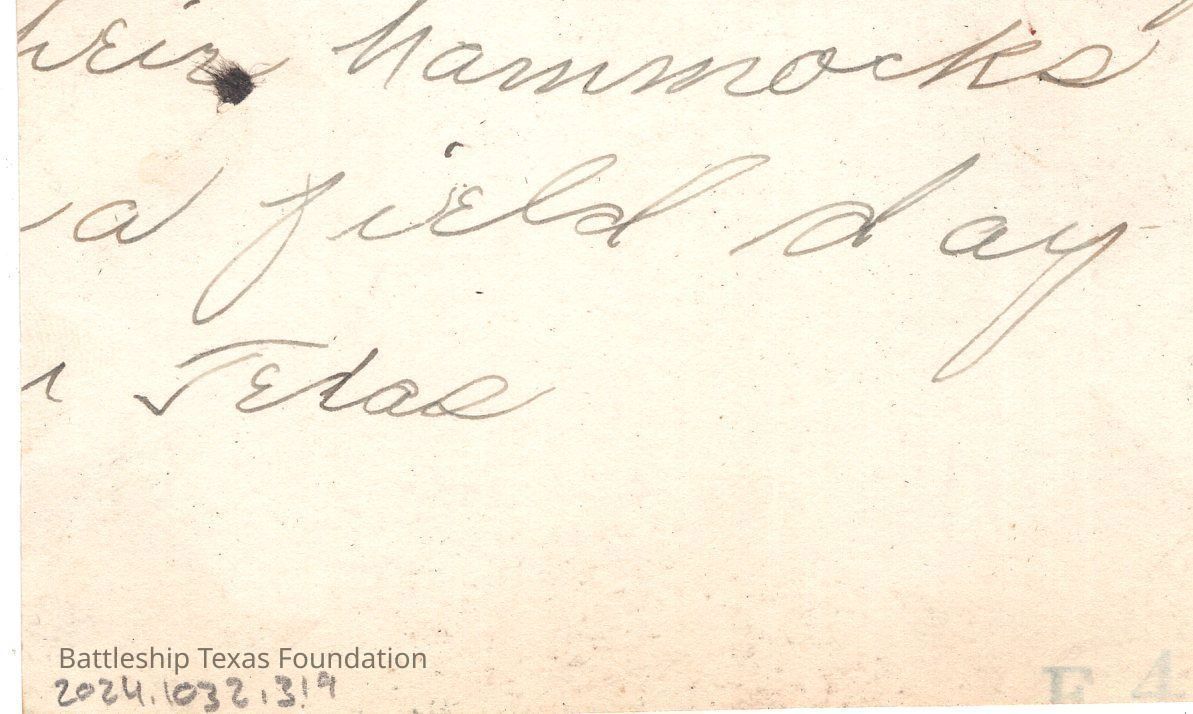 heir hammocks
a field day
Texas
Battleship Texas Foundation
2024.1032.319
E 4